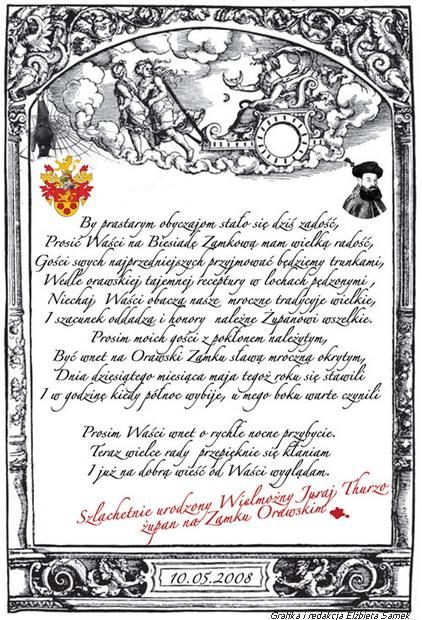 By prastarym obyczajom stało się dziś zadość,
Prosić Waści na Biesiadę Zamkową mam wielką radość,
Gości swych najprzedniejszych przyjmować będziemy trunkami,
Wedle orawskiej tajemnej receptury w lochach pędzonymi ,
Niechaj Waści obaczą nasze mroczne tradycyje wielkie,
I szacunek oddadzą i honory należne Żupanowi wszelkie.
Prosim moich gości z pokłonem należytym,
Być wnet na Orawski Zamku sławą mroczną okrytym,
Dnia dziesiątego miesiąca maja tegoż roku się stawili
I w godzinę kiedy północ wybije, u mego boku warte czynili
Prosim Waści wnet o rychłe nocne przybycie.
Teraz wielce rady przepięknie się kłaniam
I już na dobrą wieść od Waści wyglądam.
Szlachetnie urodzony Wielmożny Juraj Thurzo
żupan na Zamku Orawskim
10.05.2008
Grafika i redakcja Elżbieta Samek